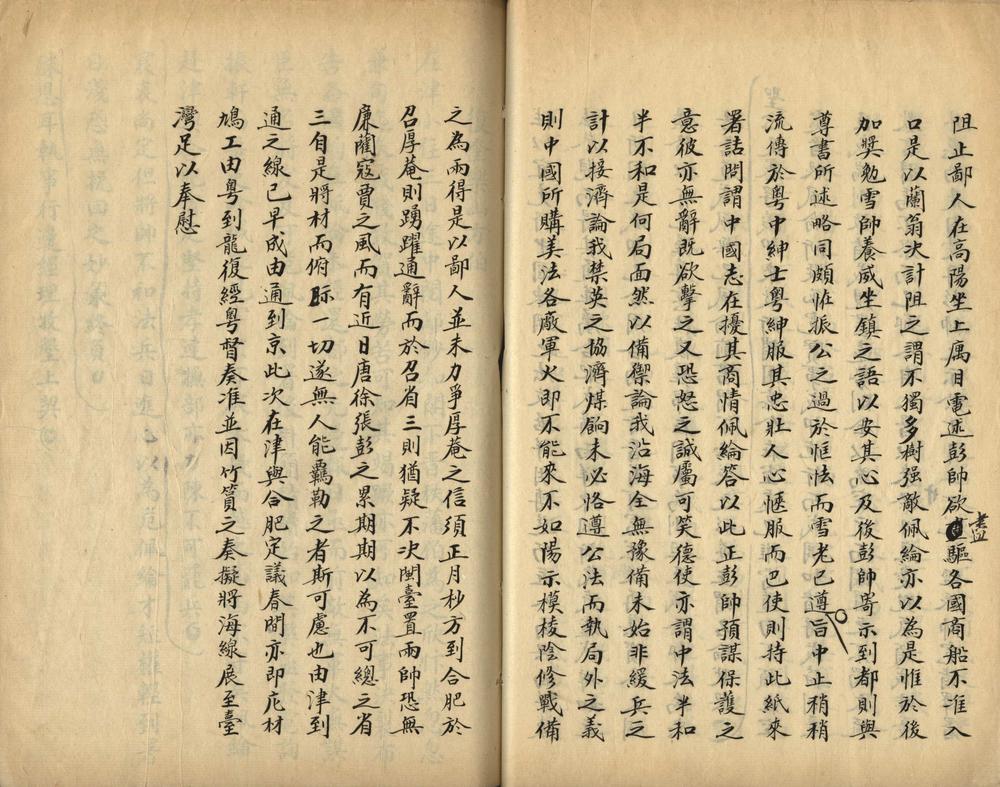 阻止鄙人在高陽坐上屬目電述彭帥欲盡驅各國商船不准入
口是以蘭翁次計阻之謂不獨多樹强敵佩綸亦以為是惟於後
加獎勉雪帥養威坐鎮之語以安其心及後彭帥寄示到都則與
尊書所述略同頗恠振公之過於恇怯而雪老已遵旨中止稍稍
流傳於粤中紳士粤紳服其忠壯人心愜服而巴使則持此紙來
署詰問謂中國志在擾其商情佩綸答以此正彭帥預謀保護之
意彼亦無辭既欲擊之又恐怒之誠屬可笑德使亦謂中法半和
半不和是何局面然以備禦論我沿海全無豫備未始非緩兵之
計以接濟論我禁英之協濟煤餉未必恪遵公法而執局外之義
則中國所購美法各廠軍火即不能來不如陽示模棱陰修戰備
之為兩得是以鄙人並未力爭厚菴之信須正月杪方到合肥於
召厚菴則踴躍通辭而於召省三則猶疑不次閩臺置兩帥恐無
廉藺寇賈之風而有近日唐徐張彭之累期期以為不可總之省
三自是將材而俯眎一切遂無人能羈勒之者斯可慮也由津到
通之線已早成由通到京此次在津與合肥定議春間亦即庀材
鳩工由粤到龍復經粤督奏准並因竹篔之奏擬將海線展至臺
灣足以奉慰